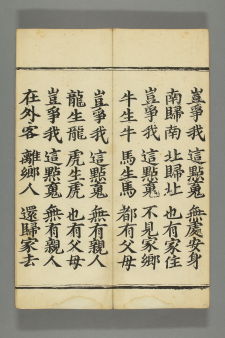 豈爭我 這點䰟 無處安身
南歸南 北歸北 也有家住
豈爭我 這點䰟 不見家鄉
牛生牛 馬生馬 都有父母
豈爭我 這點䰟 無有親人
龍生龍 虎生虎 也有父母
豈爭我 這點䰟 無有親人
在外客 離鄉人 還歸家去